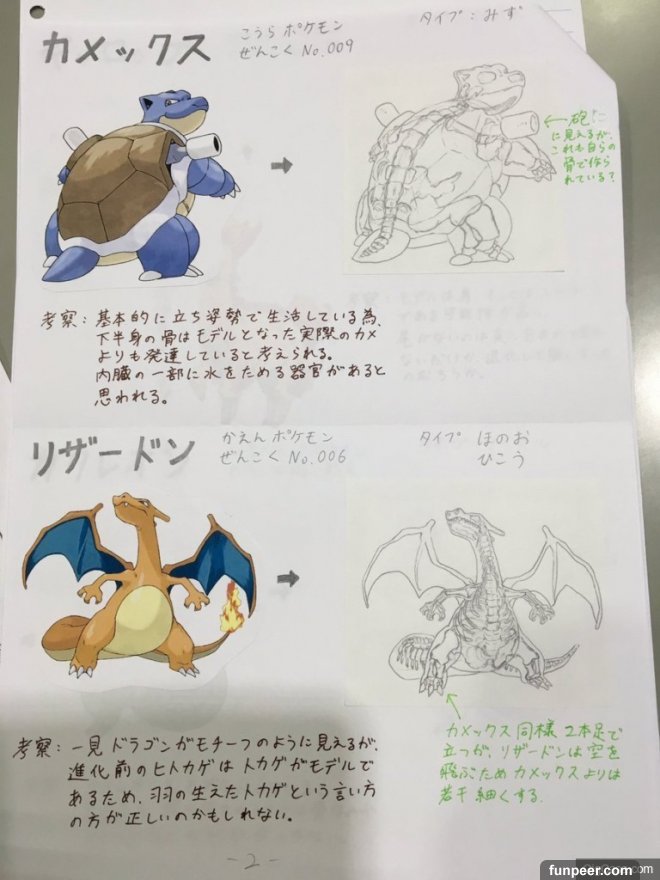 カメックス
こうら ポケモン
ぜんこく No.009
タイプ：みず
←砲に
に見えるが、
これも自らの
骨で作ら
れている？
考察：基本的に立ち姿勢で生活している為、
下半身の骨はモデルとなった実際のカメ
よりも発達していると考えられる。
内臓の一部に水をためる器官があると
思われる。
リザードン
かえん ポケモン
ぜんこく No.006
タイプ ほのお
ひこう
カメックス同様 2本足で
立つが、リザードンは空を
飛ぶため カメックスよりは
若干 細くする.
考察：一見 ドラゴンがモチーフのように見えるが、
進化前のヒトカゲは トカゲがモデルで
あるため、羽の生えたトカゲという言い方
の方が正しいのかもしれない。
-2-
funpeer.com